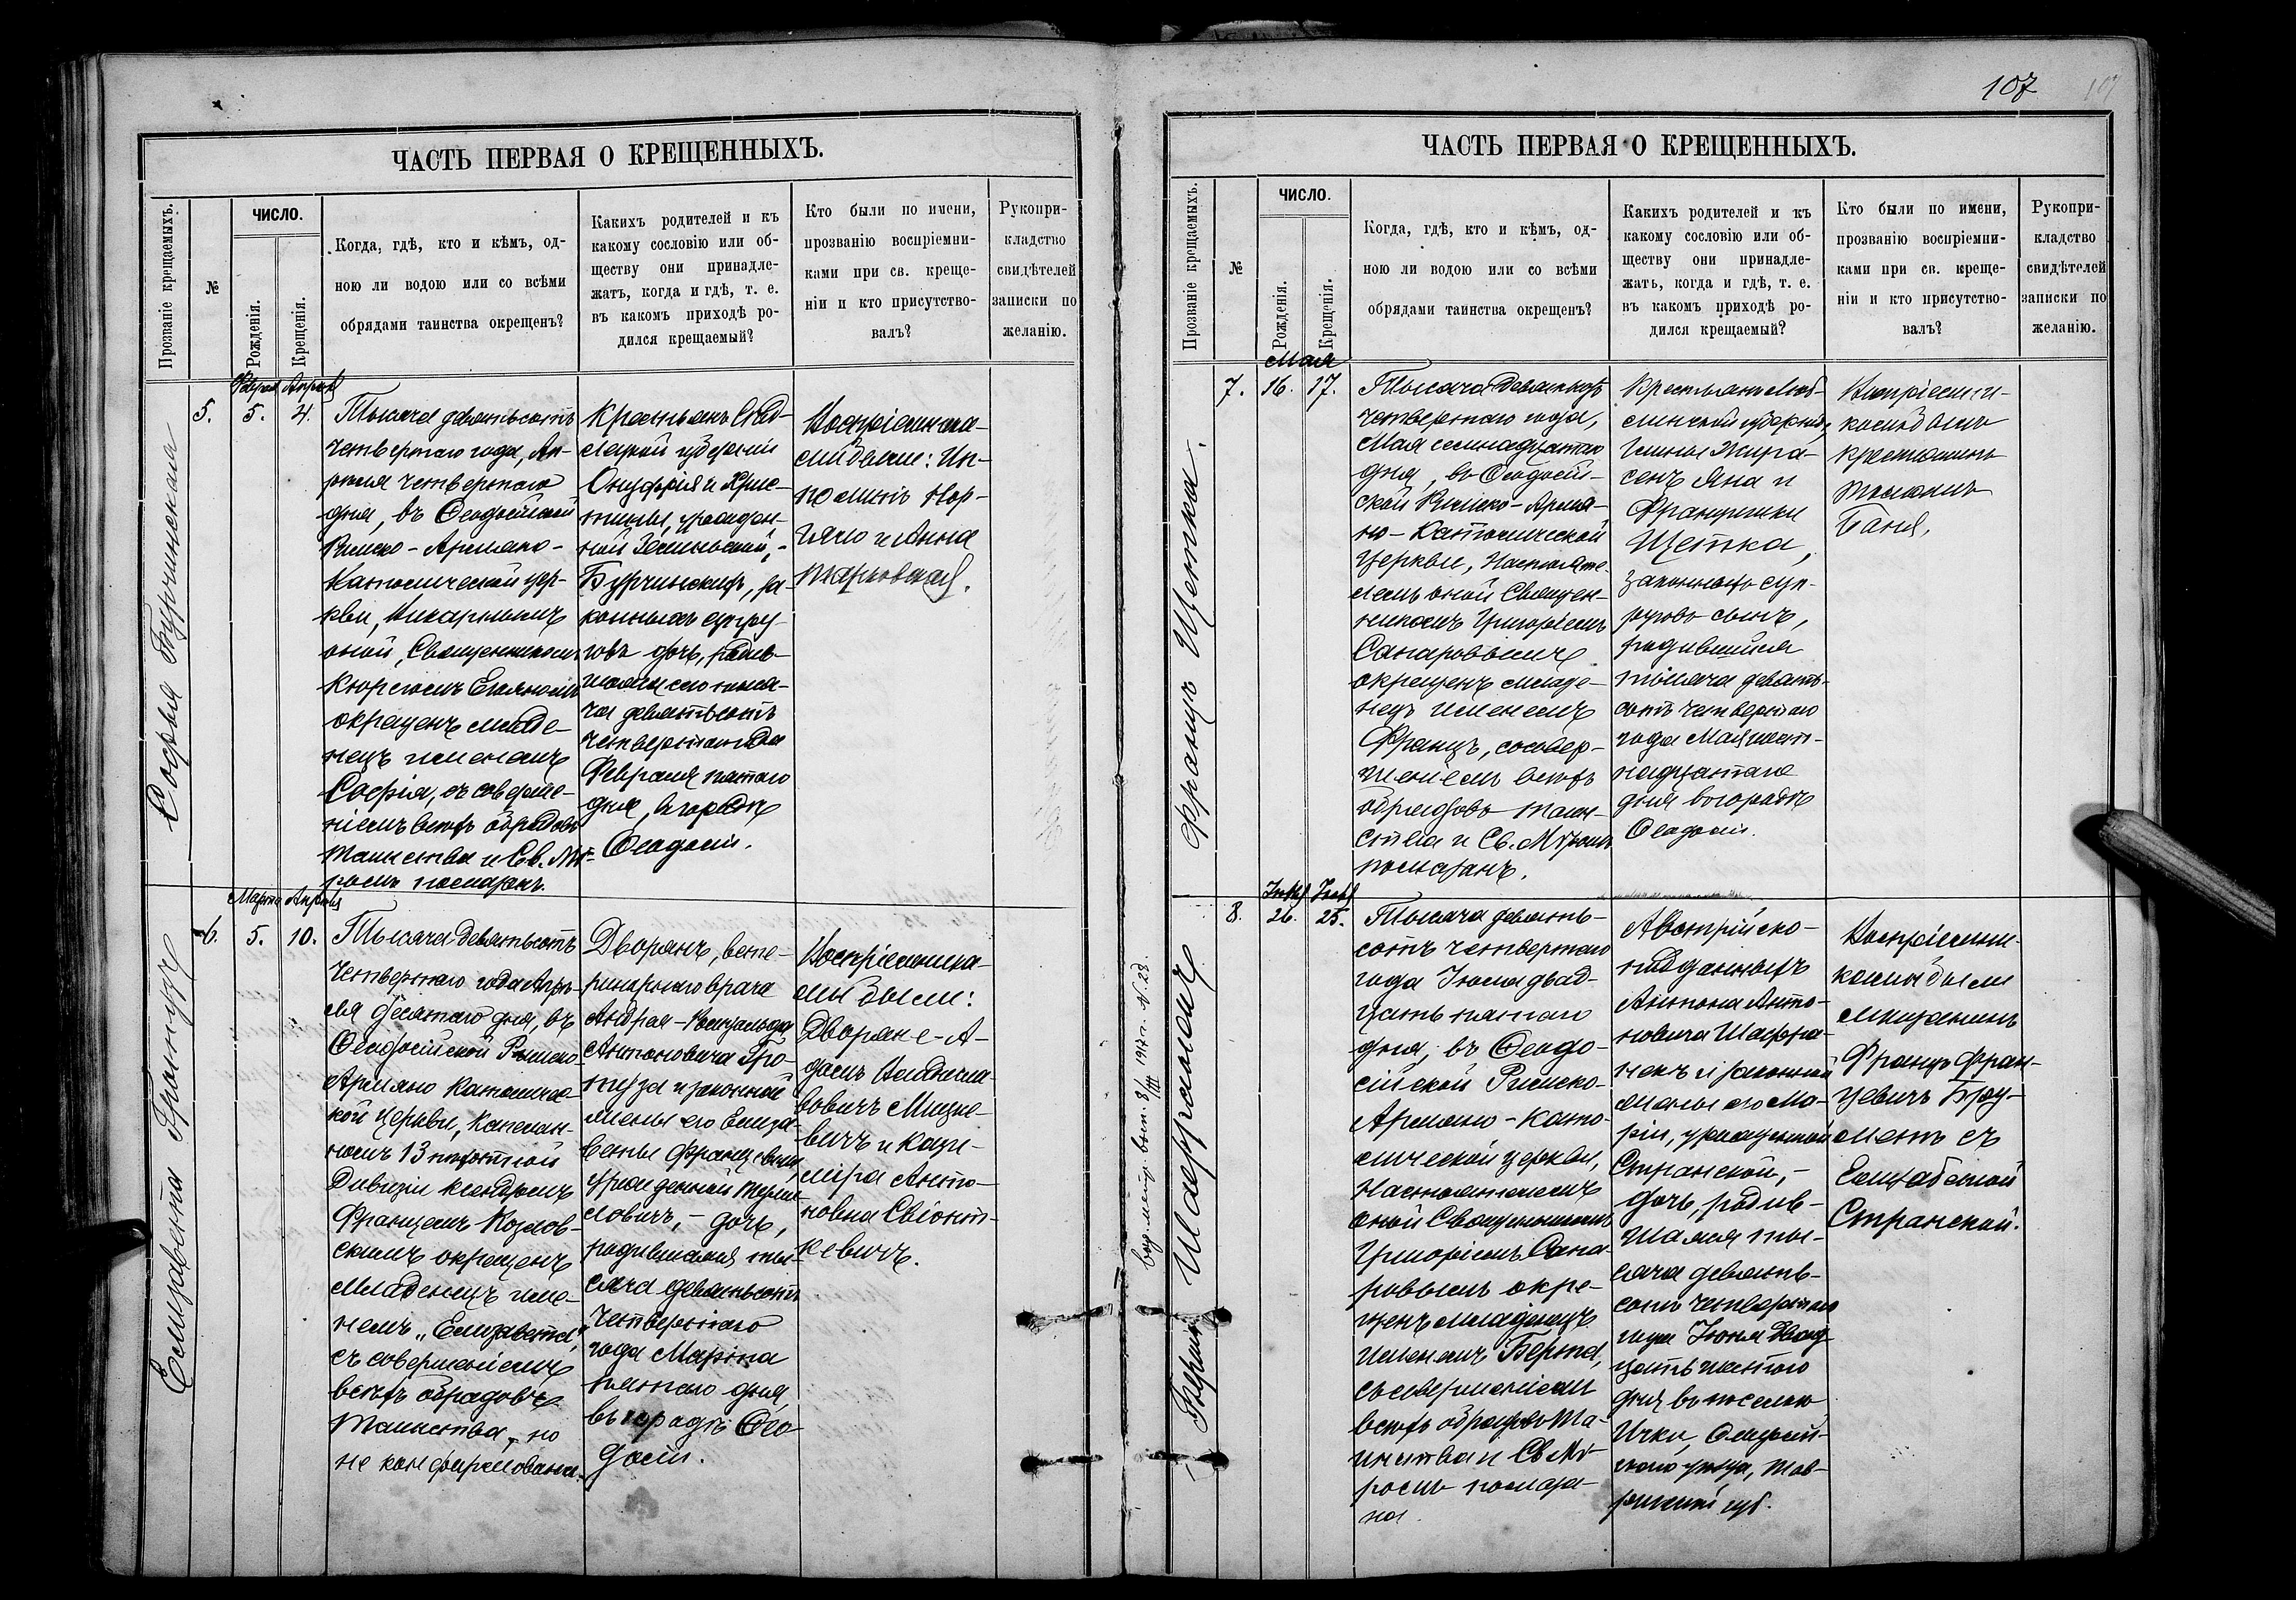 107
107
ЧАСТЬ ПЕРВАЯ О КРЕЩЕННЫХЪ.
Прозваніе крещаемыхъ.
№
ЧИСЛО.
Рожденія.
Крещенія.
Когда, гдѣ, кто и кѣмъ, од-
ною ли водою или со всѣми
обрядами таинства окрещенъ?
Каихъ родителей и къ
какому сословію или об-
ществу они принадле-
жатъ, когда и гдѣ, т. е.
въ какомъ приходѣ ро-
дился крещаемый?
Кто были по имени,
прозванію воспріемни-
ками при св. креще-
ніи и кто присутство-
валъ?
Рукопри-
кладство
свидѣтелей
записки по
желанію.
Софья Бурчинская
5.
Февраля
5.
Апрѣля
4.
Тысяча девятьсотъ
четвертаго года, Ап-
рѣля четвертаго
дня, въ Ѳеодосійской
Римско-Армяно-
Католической цер-
кви, Викарнымъ
оной, Священникомъ
окрещенъ младе-
нецъ именемъ
Софія, съ соверше-
ніемъ всѣхъ обрядовъ
таинства и Св. Мѵ-
ромъ помазанъ.
Крестьянъ Сѣд-
лецкой губерніи
Онуфрія и Хрис-
тины, урожден-
ной
Бурчинскихъ, за-
конныхъ супру-
говъ дочь, родив-
шаяся тыся-
ча девятьсотъ
четвертаго года
Февраля пятаго
дня, въ городѣ
Ѳеодосіи.
Воспріемника-
ми были: Ип-
политъ
и Анна
6.
Марта
5.
Апрѣля
10.
Елизавета Гротузъ
Тысяча девятьсотъ
четвертаго года Апрѣ-
ля десятаго дня, въ
Ѳеодосійской Римско-
Армяно Католичес-
кой церкви, Капелан-
номъ 13 пѣхотной
Дивизіи ксендзомъ
Францемъ Козлов-
скимъ окрещенъ
младенецъ име-
немъ „Елизавета“,
съ совершеніемъ
всѣхъ обрядовъ
таинства, но
не конфирмована.
Дворянъ, вете-
ринарнаго врача
Андрея-
Антоновича Гро-
туза и законной
жены его Елиза-
веты Францевны,
урожденной
ловичъ, - дочь,
родившаяся ты-
сяча девятьсотъ
четвертаго
года Марта
пятаго дня,
въ городѣ Ѳео-
досіи.
Воспріемника-
ми были:
Дворяне-А-
дамъ
вовичъ Мицке-
вичъ и Кази-
міра Анто-
новна Свіонт-
кевичъ.
ЧАСТЬ ПЕРВАЯ О КРЕЩЕННЫХЪ.
Прозваніе крещаемыхъ.
№
ЧИСЛО.
Рожденія.
Крещенія.
Когда, гдѣ, кто и кѣмъ, од-
ною ли водою или со всѣми
обрядами таинства окрещенъ?
Какихъ родителей и къ
какому сословію или об-
ществу они принадле-
жатъ, когда и гдѣ, т. е.
въ какомъ приходѣ ро-
дился крещаемый?
Кто были по имени,
прозванію воспріемни-
ками при св. креще-
ніи и кто присутство-
валъ?
Рукопри-
кладство
свидѣтелей
записки по
желанію.
Францъ Щетка.
7.
Мая
16.
17.
Тысяча девятьсотъ
четвертаго года,
Мая семнадцатаго
дня, въ Ѳеодосій-
ской Римско-Армя-
но-Католической
церкви, Настояте-
лемъ оной Священ-
никомъ Григоріемъ
Сапаровымъ
окрещенъ младе-
нецъ именемъ
Францъ, съ совер-
шеніемъ всѣхъ
обрядовъ таин-
ства и Св. Мѵромъ
помазанъ.
Крестьянъ Люб-
линской губерніи,
Яна и
Францишки
Щетка,
законныхъ суп-
руговъ сынъ,
родившійся
тысяча девять-
сотъ четвертаго
года Мая шест-
надцатаго
дня въ городѣ
Ѳеодосіи.
Воспріемни-
комъ былъ
крестьянинъ
Баня.
Берта Шаффранекъ
выд. метр. вып. 8/III 1917 г. № 28.
8.
26.
25.
Тысяча девять-
сотъ четвертаго
года Іюля двад-
цать пятаго
дня, въ Ѳеодо-
сійской Римско-
Армяно-Като-
лической церкви,
Настоятелемъ
оной Священникомъ
Григоріемъ Сапа-
ровымъ окре-
щенъ младенецъ
именемъ Берта,
съ совершеніемъ
всѣхъ обрядовъ Та-
инства и Св Мѵ-
ромъ помаза-
на.
Австрійско-
подданныхъ
Антона Анто-
новича Шаффра-
некъ и законной
жены его Ма-
ріи, урожденной
Странской, -
дочь, родив-
шаяся ты-
сяча девять-
сотъ четвертаго
года Іюня двад-
цать шестого
дня въ поселкѣ
Ички, Ѳеодосій-
скаго уѣзда, Тав-
рической губ.
Воспріемни-
ками были
мѣщанинъ
Францъ Фран-
цевичъ
съ
Елизаветой
Странской.